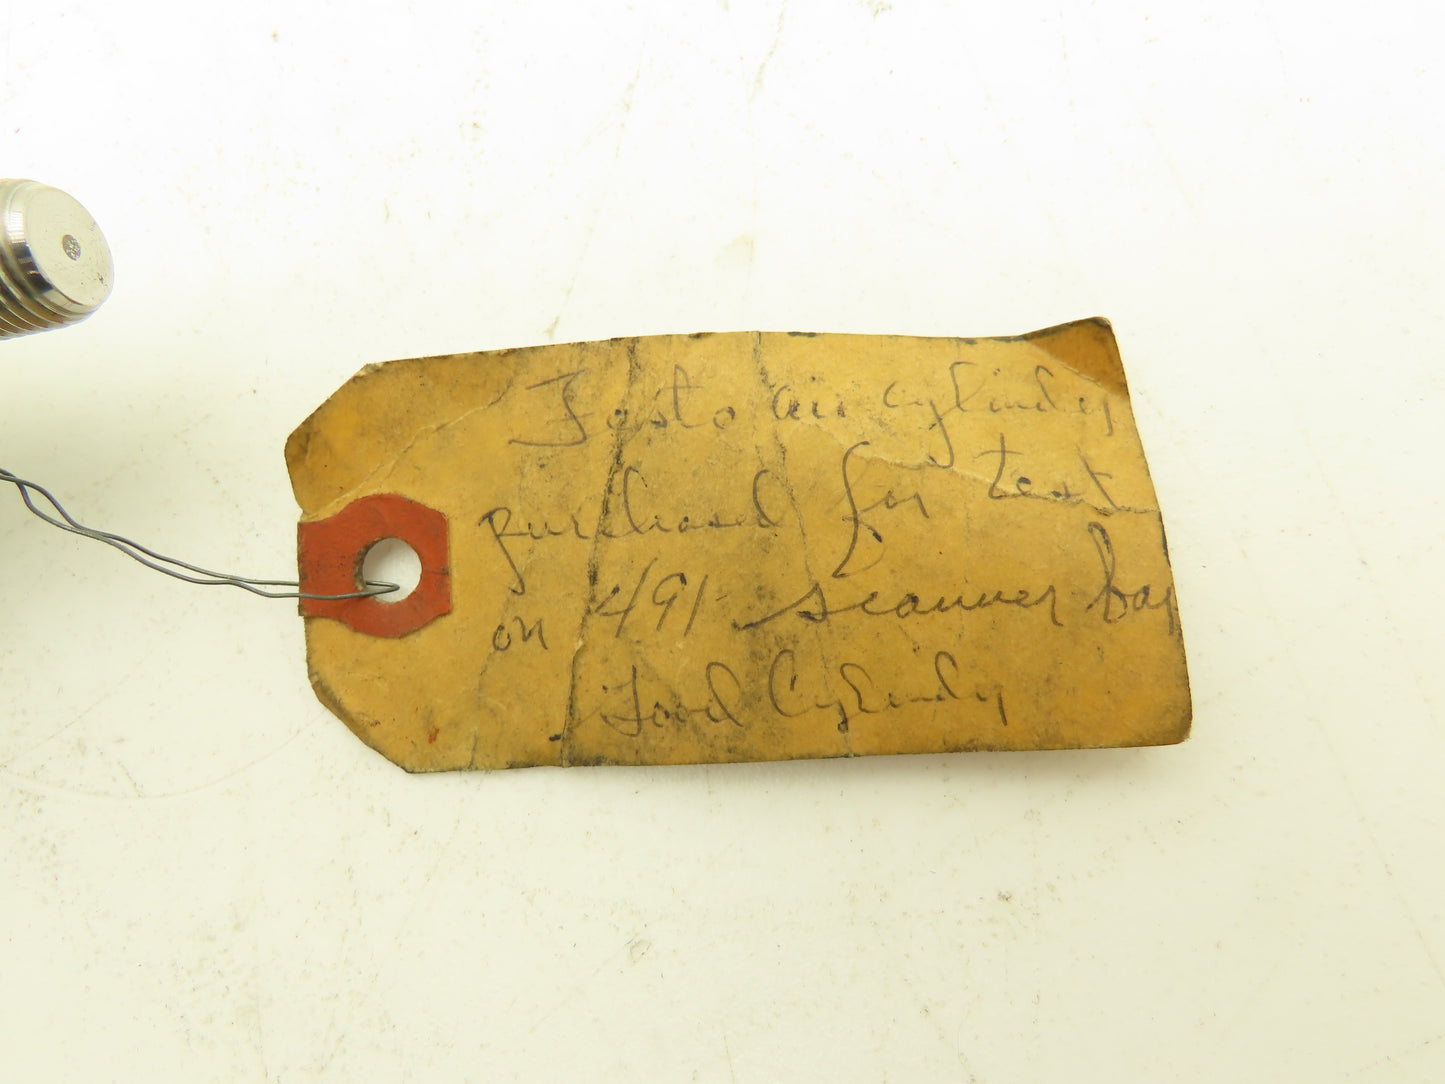 Festo air cylinder
purchased for test
on 491 scanner bar
Good Cylinder